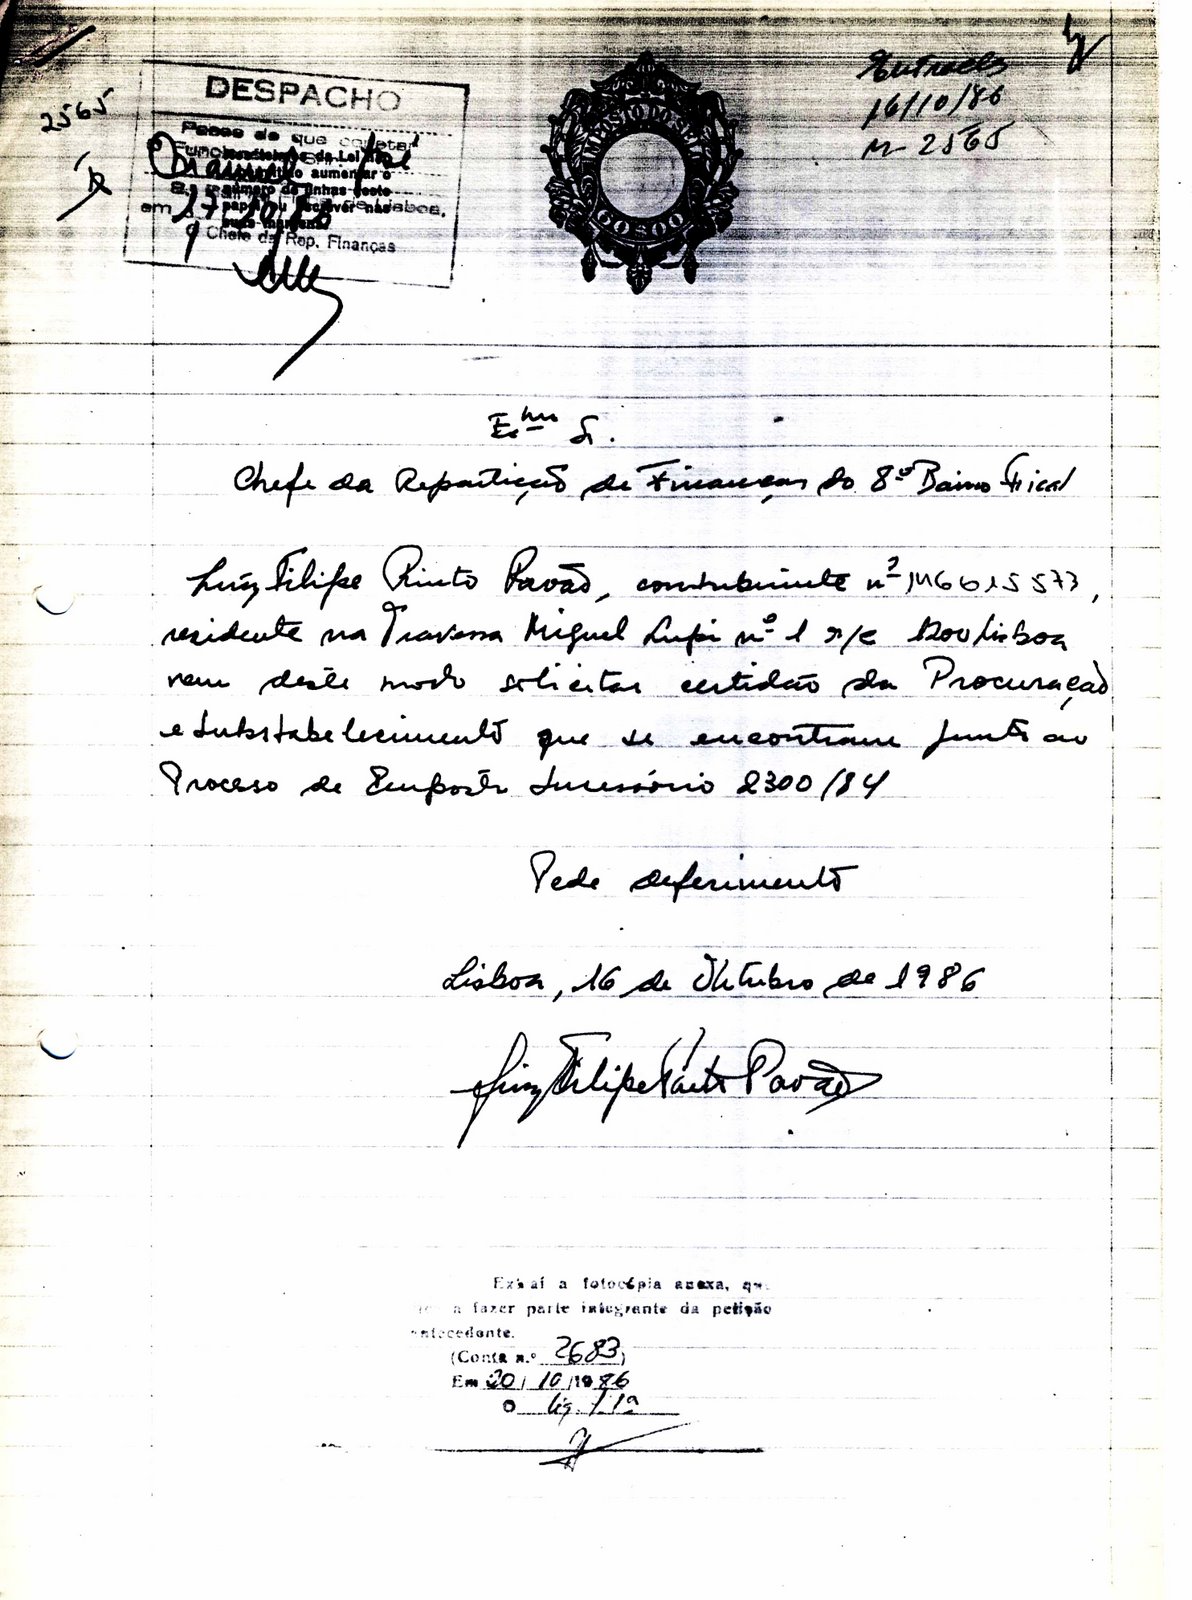 2565
DESPACHO
Passe do que constar
em 17/10/86
O Chefe da Rep. Finanças
IMPOSTO DO SELO
Entrada
16/10/86
nº 2565
Exmo Sr.
Chefe da Repartição de Finanças do 8º Bairro Fiscal
Luiz Filipe Pinto Pavão, contribuinte nº 146615573,
residente na Travessa Miguel Lupi nº 1 r/c 1200 Lisboa
vem deste modo solicitar certidão da Procuração
e substabelecimento que se encontram junto ao
Processo de Imposto Sucessório 2300/84
Pede deferimento
Lisboa, 16 de Outubro de 1986
Luiz Filipe Pinto Pavão
a fotocópia anexa,
a fazer parte integrante da petição
antecedente.
(Conta n.º 2683)
Em 20/10/1986
O